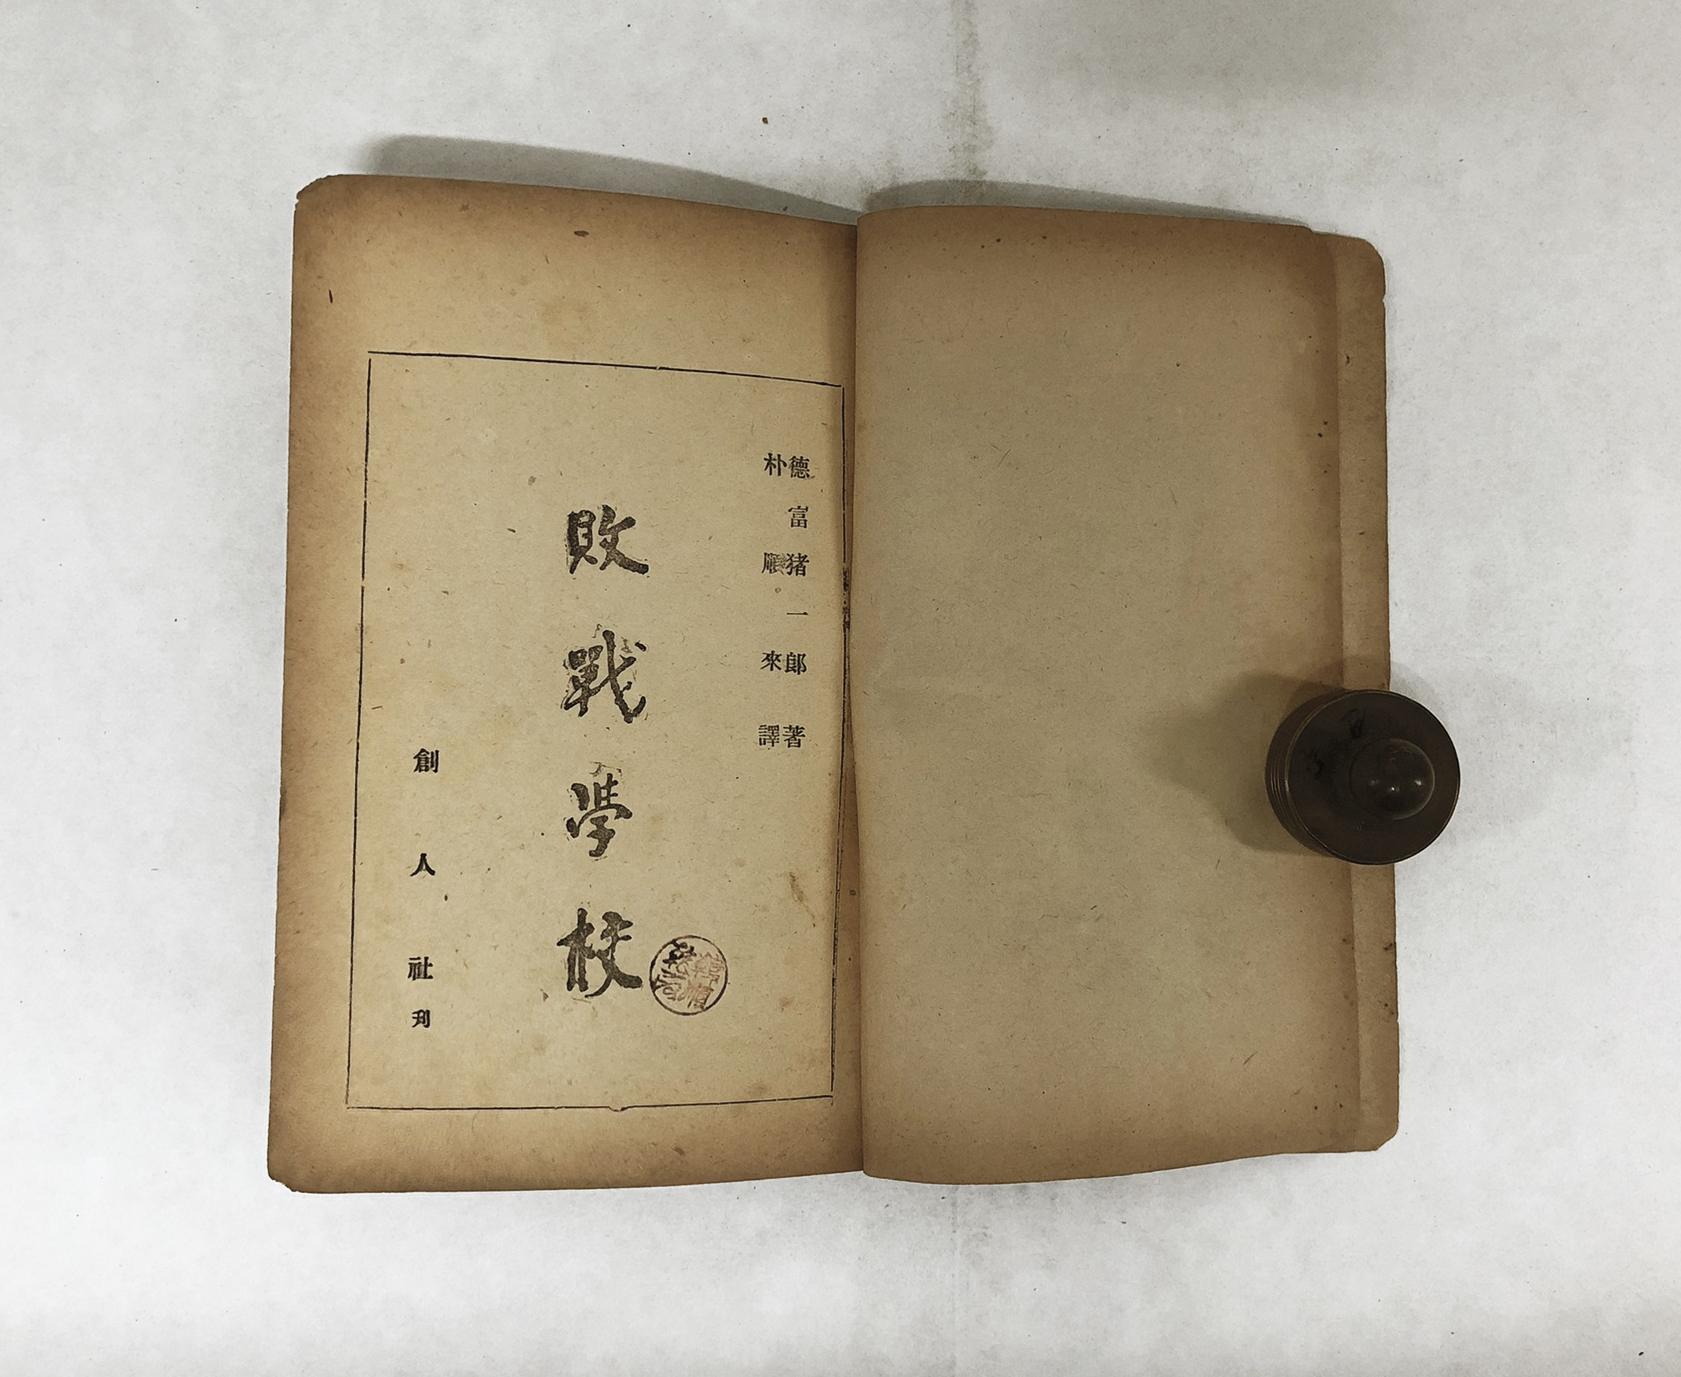 德富猪一郎 著
朴順來 譯
敗戰學校
創人社刊